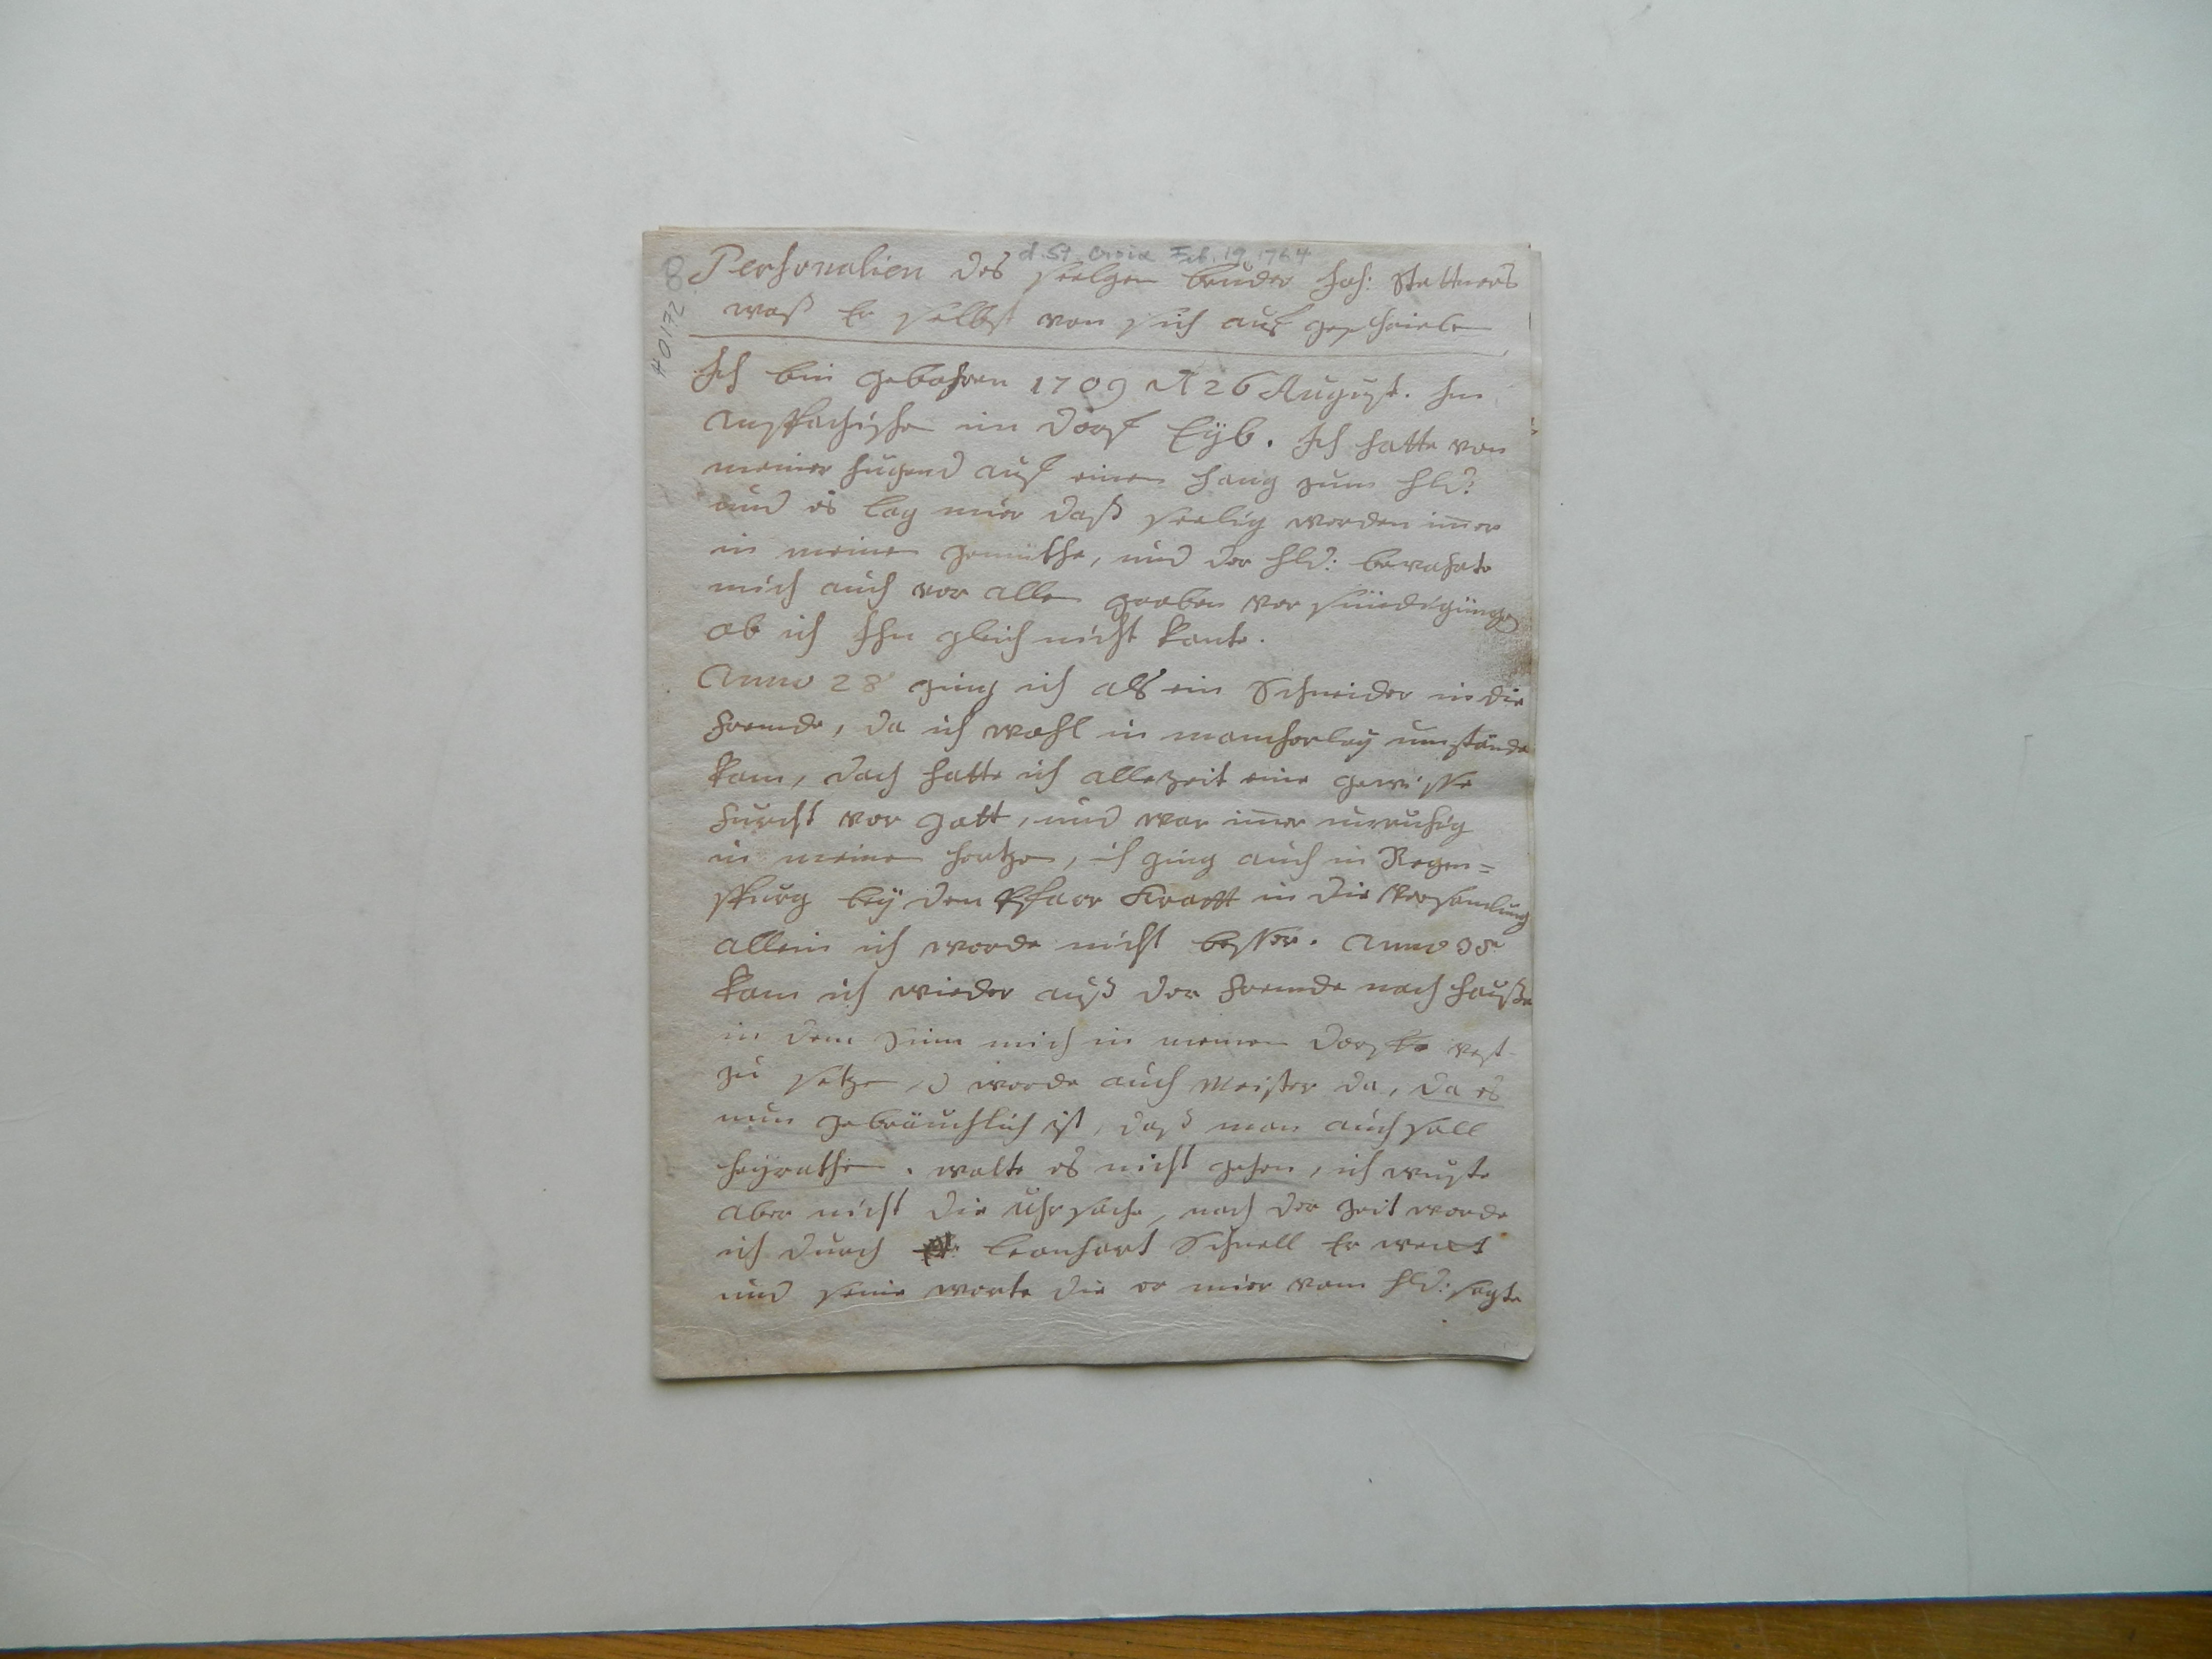 d. St. Croix Feb. 19, 1764
8
40172
Personalien des seelgen bruder Joh: Stettners
waß Er selbst von sich auf geschrieben
Ich bin gebohren 1709 26 August. Im
Anspachischen im Dorf Eyb. Ich hatte von
meiner Jugend auf einen hang zum Hld:
und es lag mier daß seelig werden im̅er
in meinem gemüthe, und der Hld: bewahrte
mich auch vor allen groben versündigungen
ob ich Ihn gleich nicht kante.
Anno 28 ging ich als ein Schneider in die
Fremde, da ich wohl in mancherley umstände
kam, doch hatte ich allezeit eine gewisse
Furcht vor Gott, und war im̅er unruhig
in meinem hertzen, ich ging auch in Regen=
spurg bey den Pfarr Krafft in die Versamlung
allein ich worde nicht besser. Anno
kam ich wieder auß der Fremde nach hauße
in dem Sinn mich in meinem Dorfe vest
zu setzen, worde auch Meister da, da es
nun gebräuchlich ist, daß man auch soll
heyrathen, wolte es nicht gehen, ich wuste
aber nicht die Uhrsache, nach der Zeit worde
ich durch Leonhart Schnell Er weckt
und seine worte die er mier vom Hld: sagte